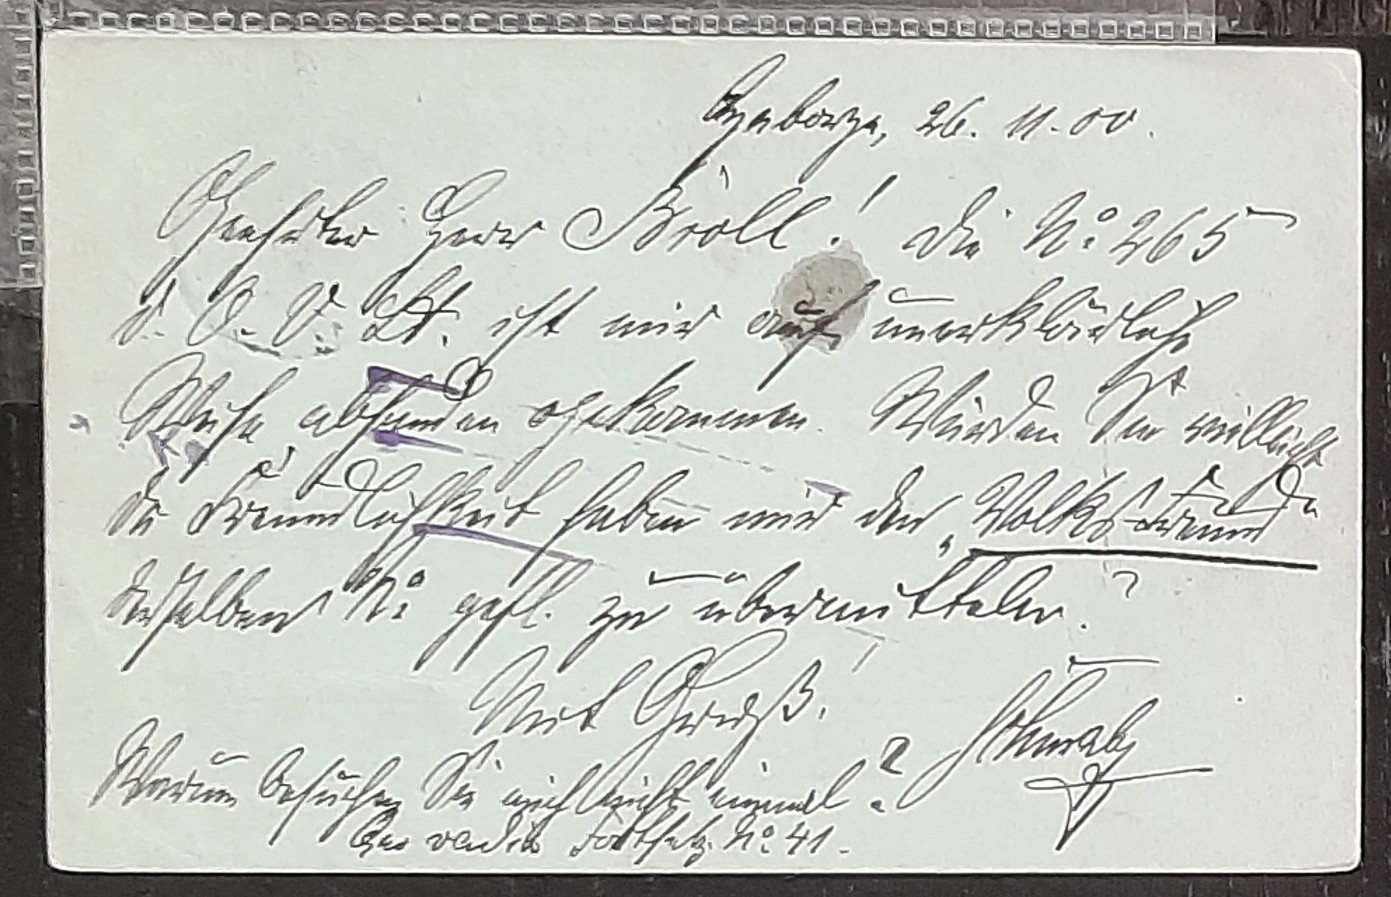 Zaborze, 26. 11. 00.
Geehrter Herr Bröll! Die No. 265
d. O. V. Zt. ist mir auf unerklärliche
Weise abhanden gekommen. Würden Sie vielleicht
die Freundlichkeit haben mir den „Volksfreund"
derselben No. gefl. zu übermitteln?
Mit Gruß!
Warum besuchen Sie mich nicht einmal?
No. 41.